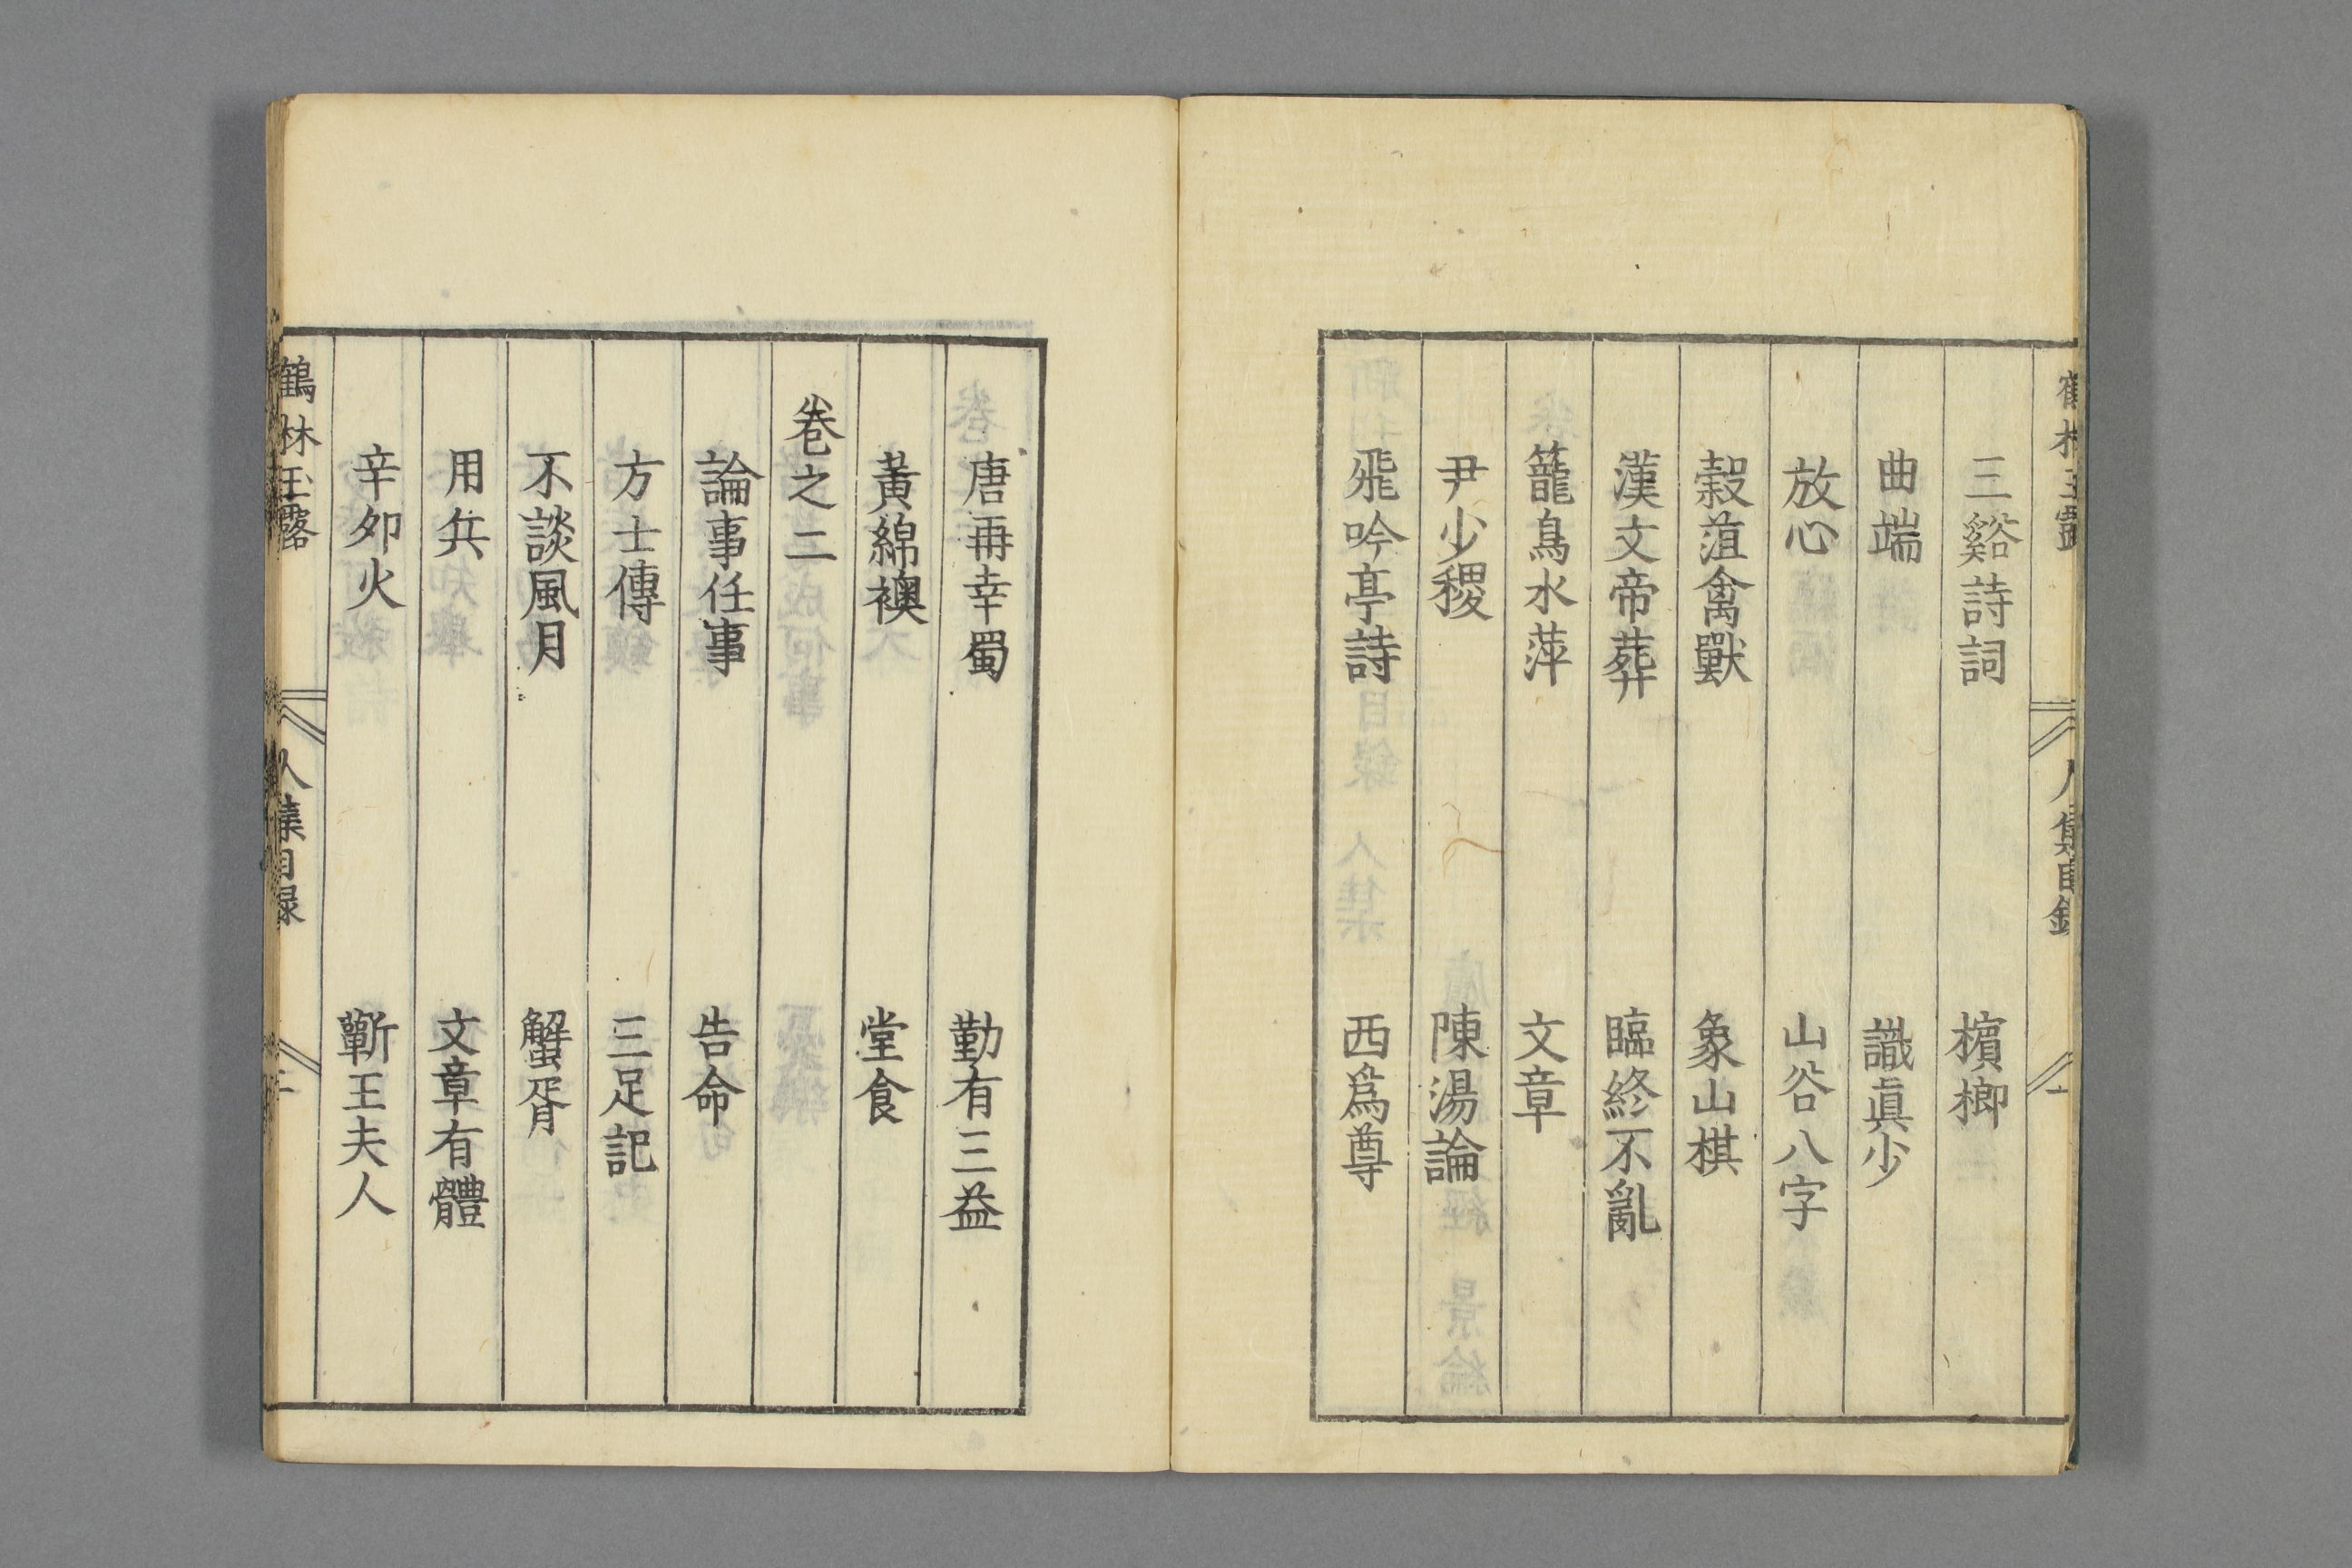 三谿詩詞　檳榔
曲端　識眞少
放心　山谷八字
縠菹禽獸　象山棋
漢文帝葬　臨終不亂
籠鳥水萍　文章
尹少稷　陳湯論
飛吟亭詩　西爲尊
唐再幸蜀　勤有三益
黃綿襖　堂食
卷之二
論事任事　告命
方士傳　三足記
不談風月　蟹胥
用兵　文章有體
辛卯火　蘄王夫人
鶴林玉露　人集目録　二